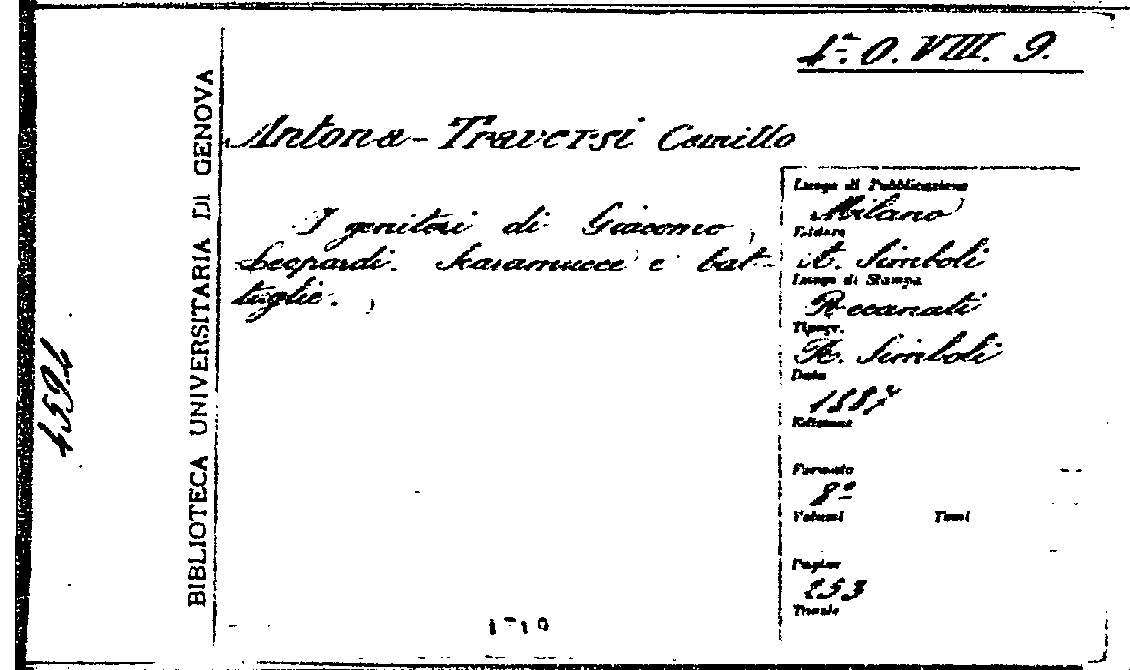 4ª. O. VIII. 9.
BIBLIOTECA UNIVERSITARIA DI GENOVA
Antona-Traversi Camillo
I genitori di Giacomo
Leopardi. Scaramucce e bat-
taglie.
Luogo di Pubblicazione
Milano
Editore
A. Simboli
Luogo di Stampa
Recanati
Tipogr.
R. Simboli
Data
1887
Edizione
Formato
8º
Volumi Tomi
Pagine
253